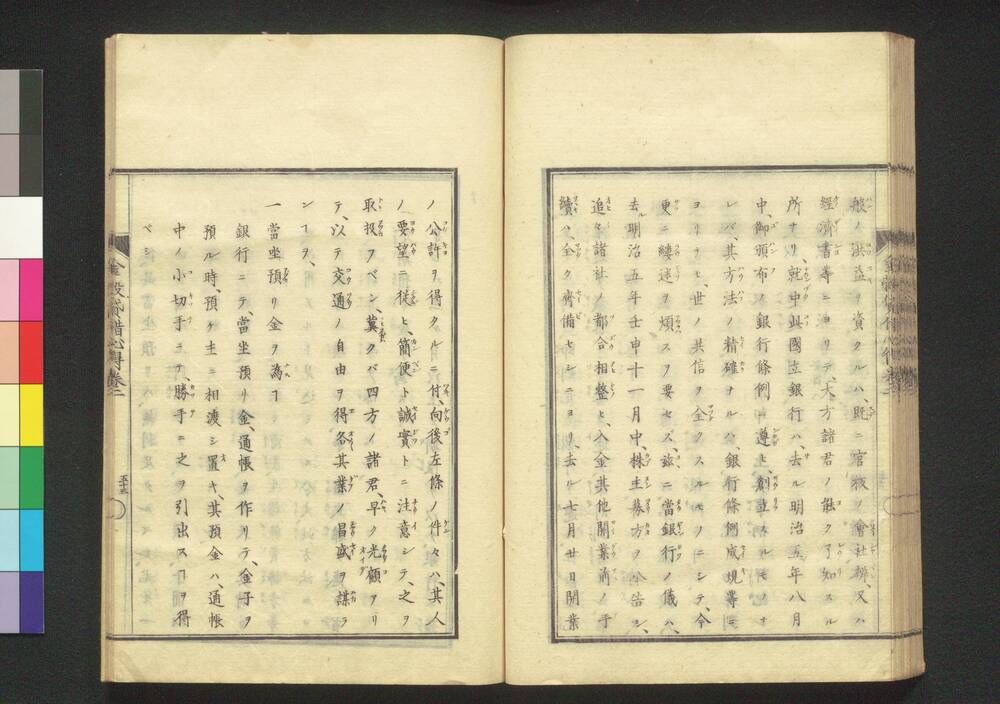 般ノ洪益ヲ資クルハ、既ニ官板ノ會社辨、又ハ
經濟書等ニヨリテ、大方諸君ノ能ク了知スル
所ナリ、就中與國立銀行ハ、去ル明治五年八月
中、御頒布ノ銀行條例ニ遵ヒ、創立スルモノナ
レバ、其方法ノ精確ナル公、銀行條例成規等ニ
ヨリテヒ、世ノ共信ヲ全フスルモノニシテ、今
更ニ縷述ヲ煩スヲ要セズ、茲ニ當銀行ノ儀ハ、
去ル明治五年壬申十一月中、株主募方ヲ公告シ、
追々諸社ノ都合相整ヒ、入金其他開業前ノ手
續ハ全ク齊備セシニヨリ、去ル七月廿日開業
ノ公許ヲ得タルニ付、向後左條ノ件々ハ、其人
ノ要望ニ從ヒ、簡便ト誠實トニ注意シテ、之ヲ
取扱フベシ、冀クバ四方ノ諸君、早ク光顧アリ
テ、以テ交通ノ自由ヲ得、各其業ノ昌盛ヲ謀ラ
ンヿヲ、
一當坐預リ金ヲ為ヿ
銀行ニテ、當坐預リ金、通帳ヲ作リテ、金子ヲ
預ル時、預ケ主ニ相渡シ置キ、其預金ハ、通帳
中ノ小切手ニテ、勝手ニ之ヲ引出スヿヲ得
ベシ
金穀貸借心得卷二
五十三